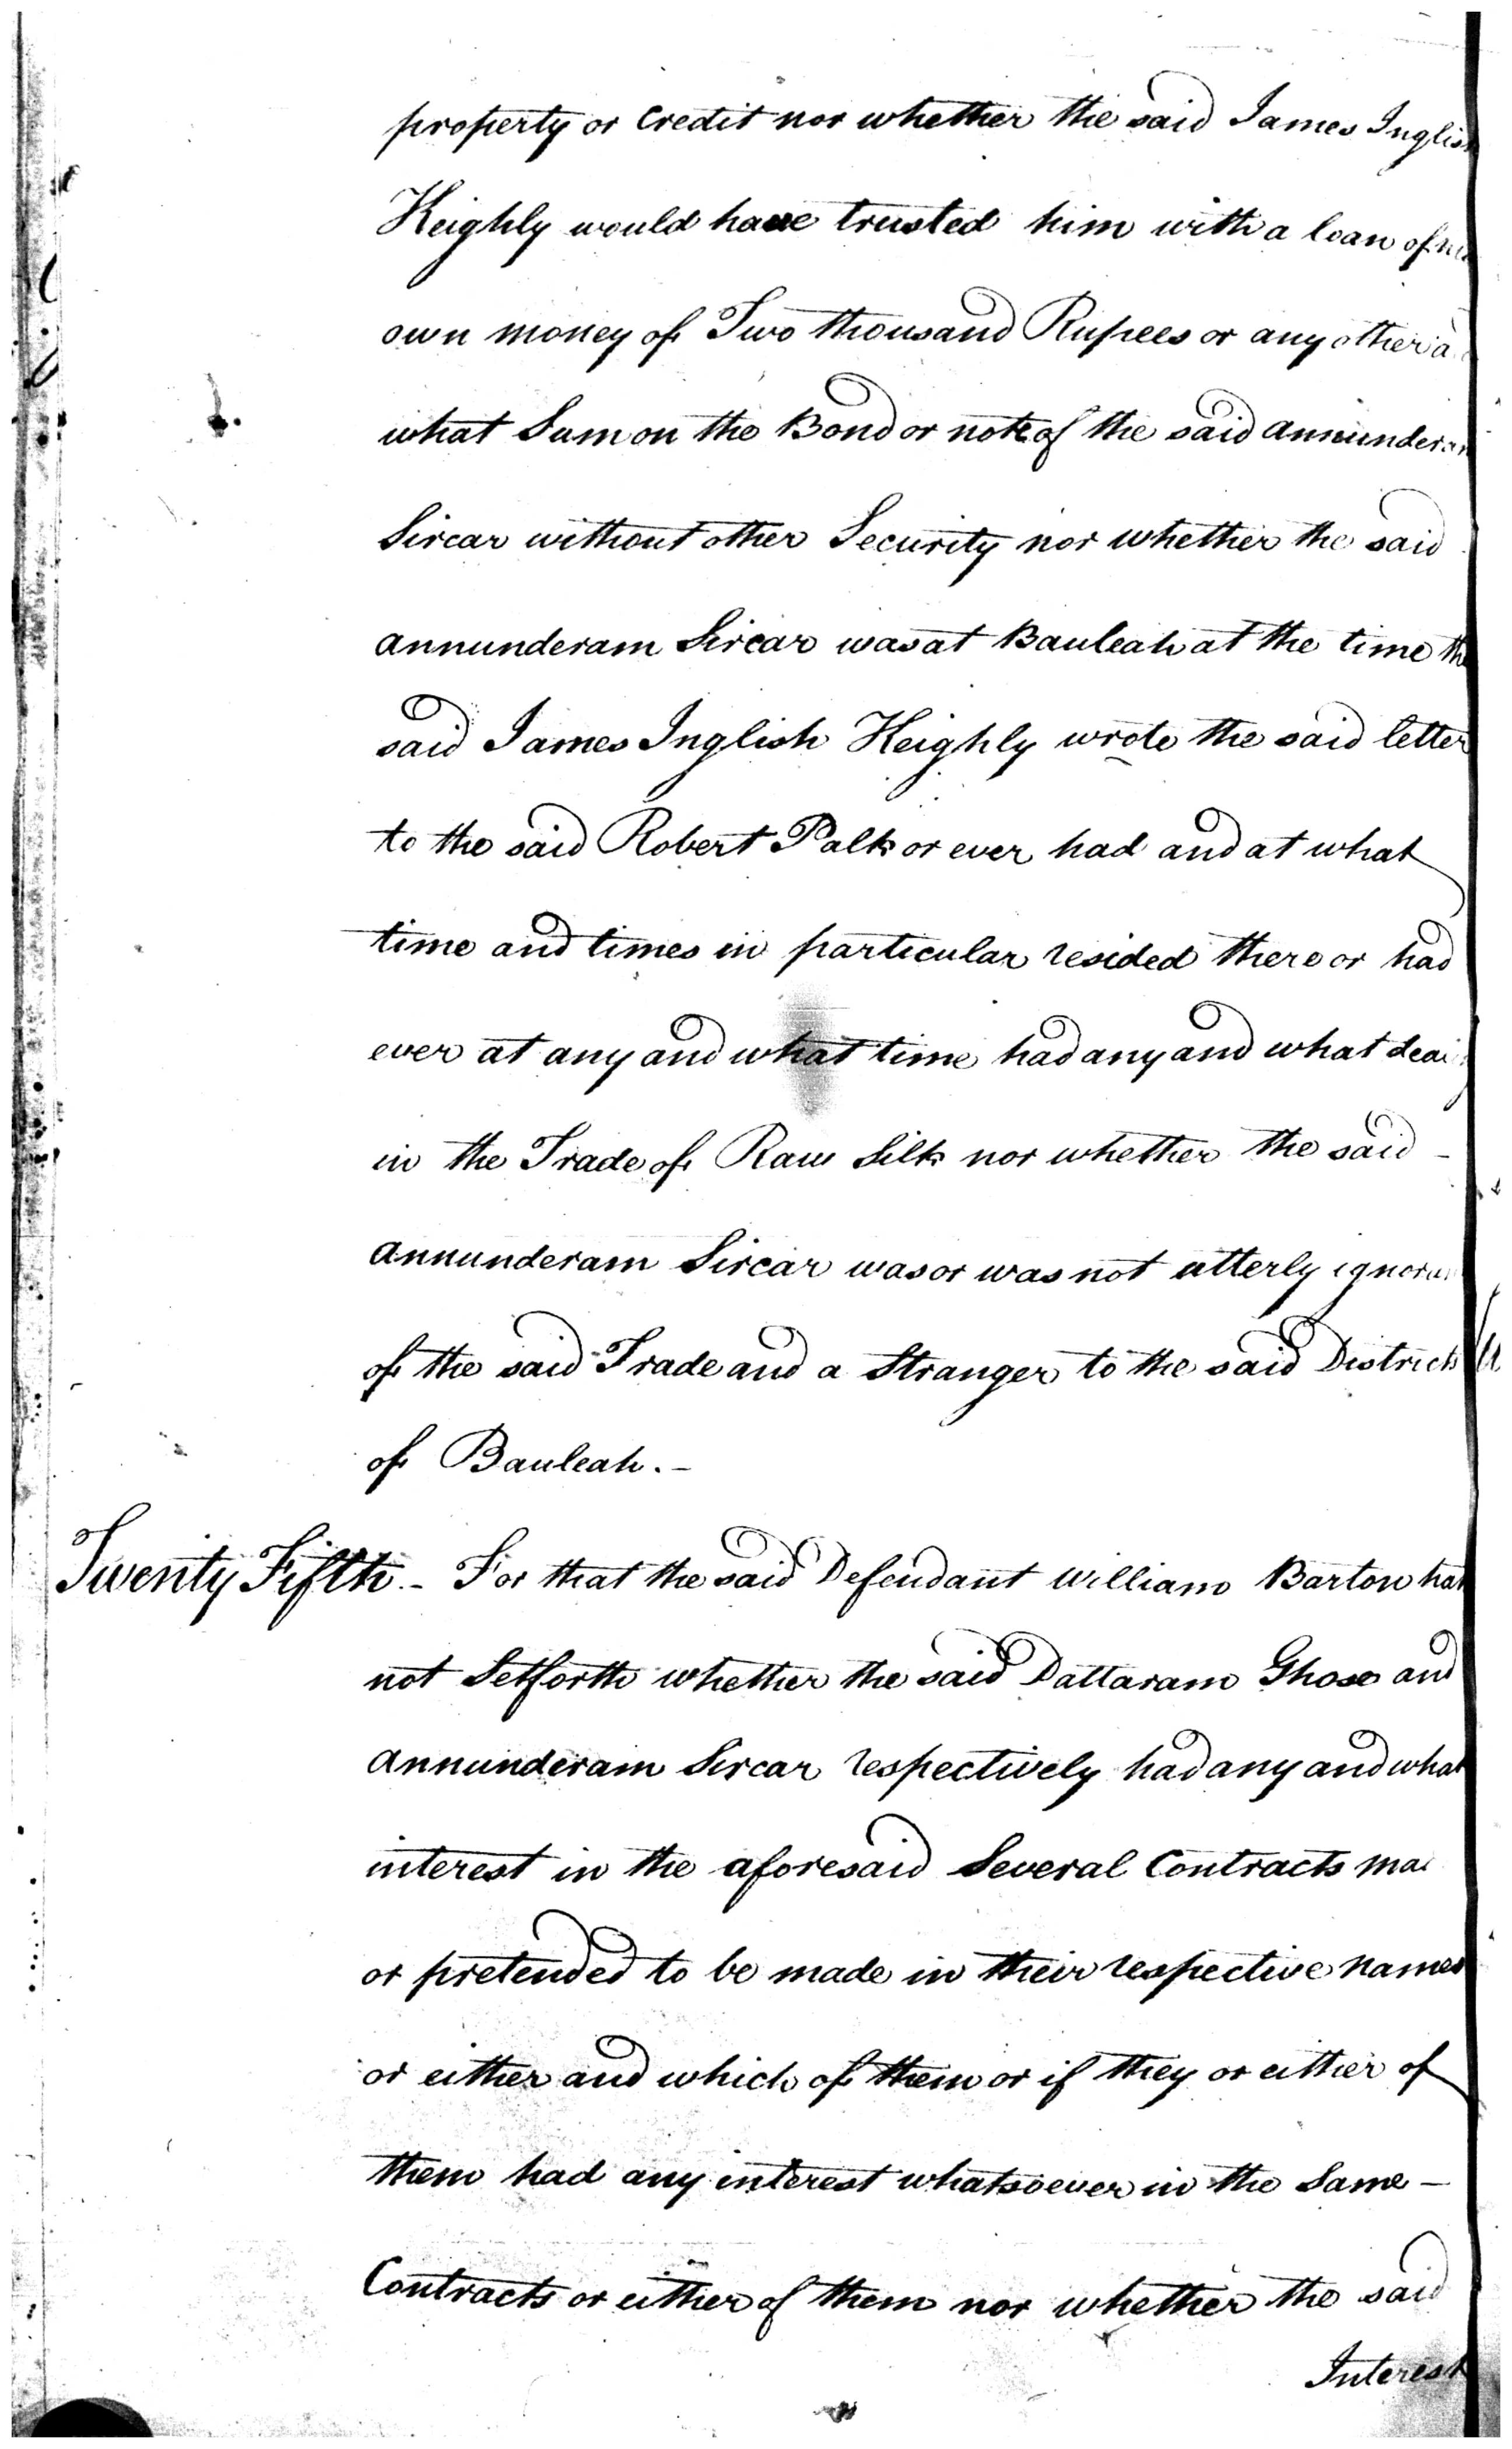 property or Credit nor whether the said James Inglish
Keighly would have trusted him with a loan of
own money of Two thousand Rupees or any other
what Sum on the Bond or note of the said Annunderam
Sircar without other Security nor whether the said
Annunderam Sircar was at Bauleah at the time the
said James Inglish Keighly wrote the said letter
to the said Robert Palk or ever had and at what
time and times in particular resided there or had
ever at any and what time had any and what
in the Trade of Raw Silk nor whether the said -
Annunderam Sircar was or was not utterly ignorant
of the said Trade and a Stranger to the said District
of Bauleah. -
Twenty Fifth - For that the said Defendant William Barton hath
not Setforth whether the said Dattaram Ghose and
Annunderam Sircar respectively had any and what
interest in the aforesaid Several Contracts
or pretended to be made in their respective names
or either and which of them or if they or either of
them had any interest whatsoever in the Same -
Contracts or either of them nor whether the said
Interest